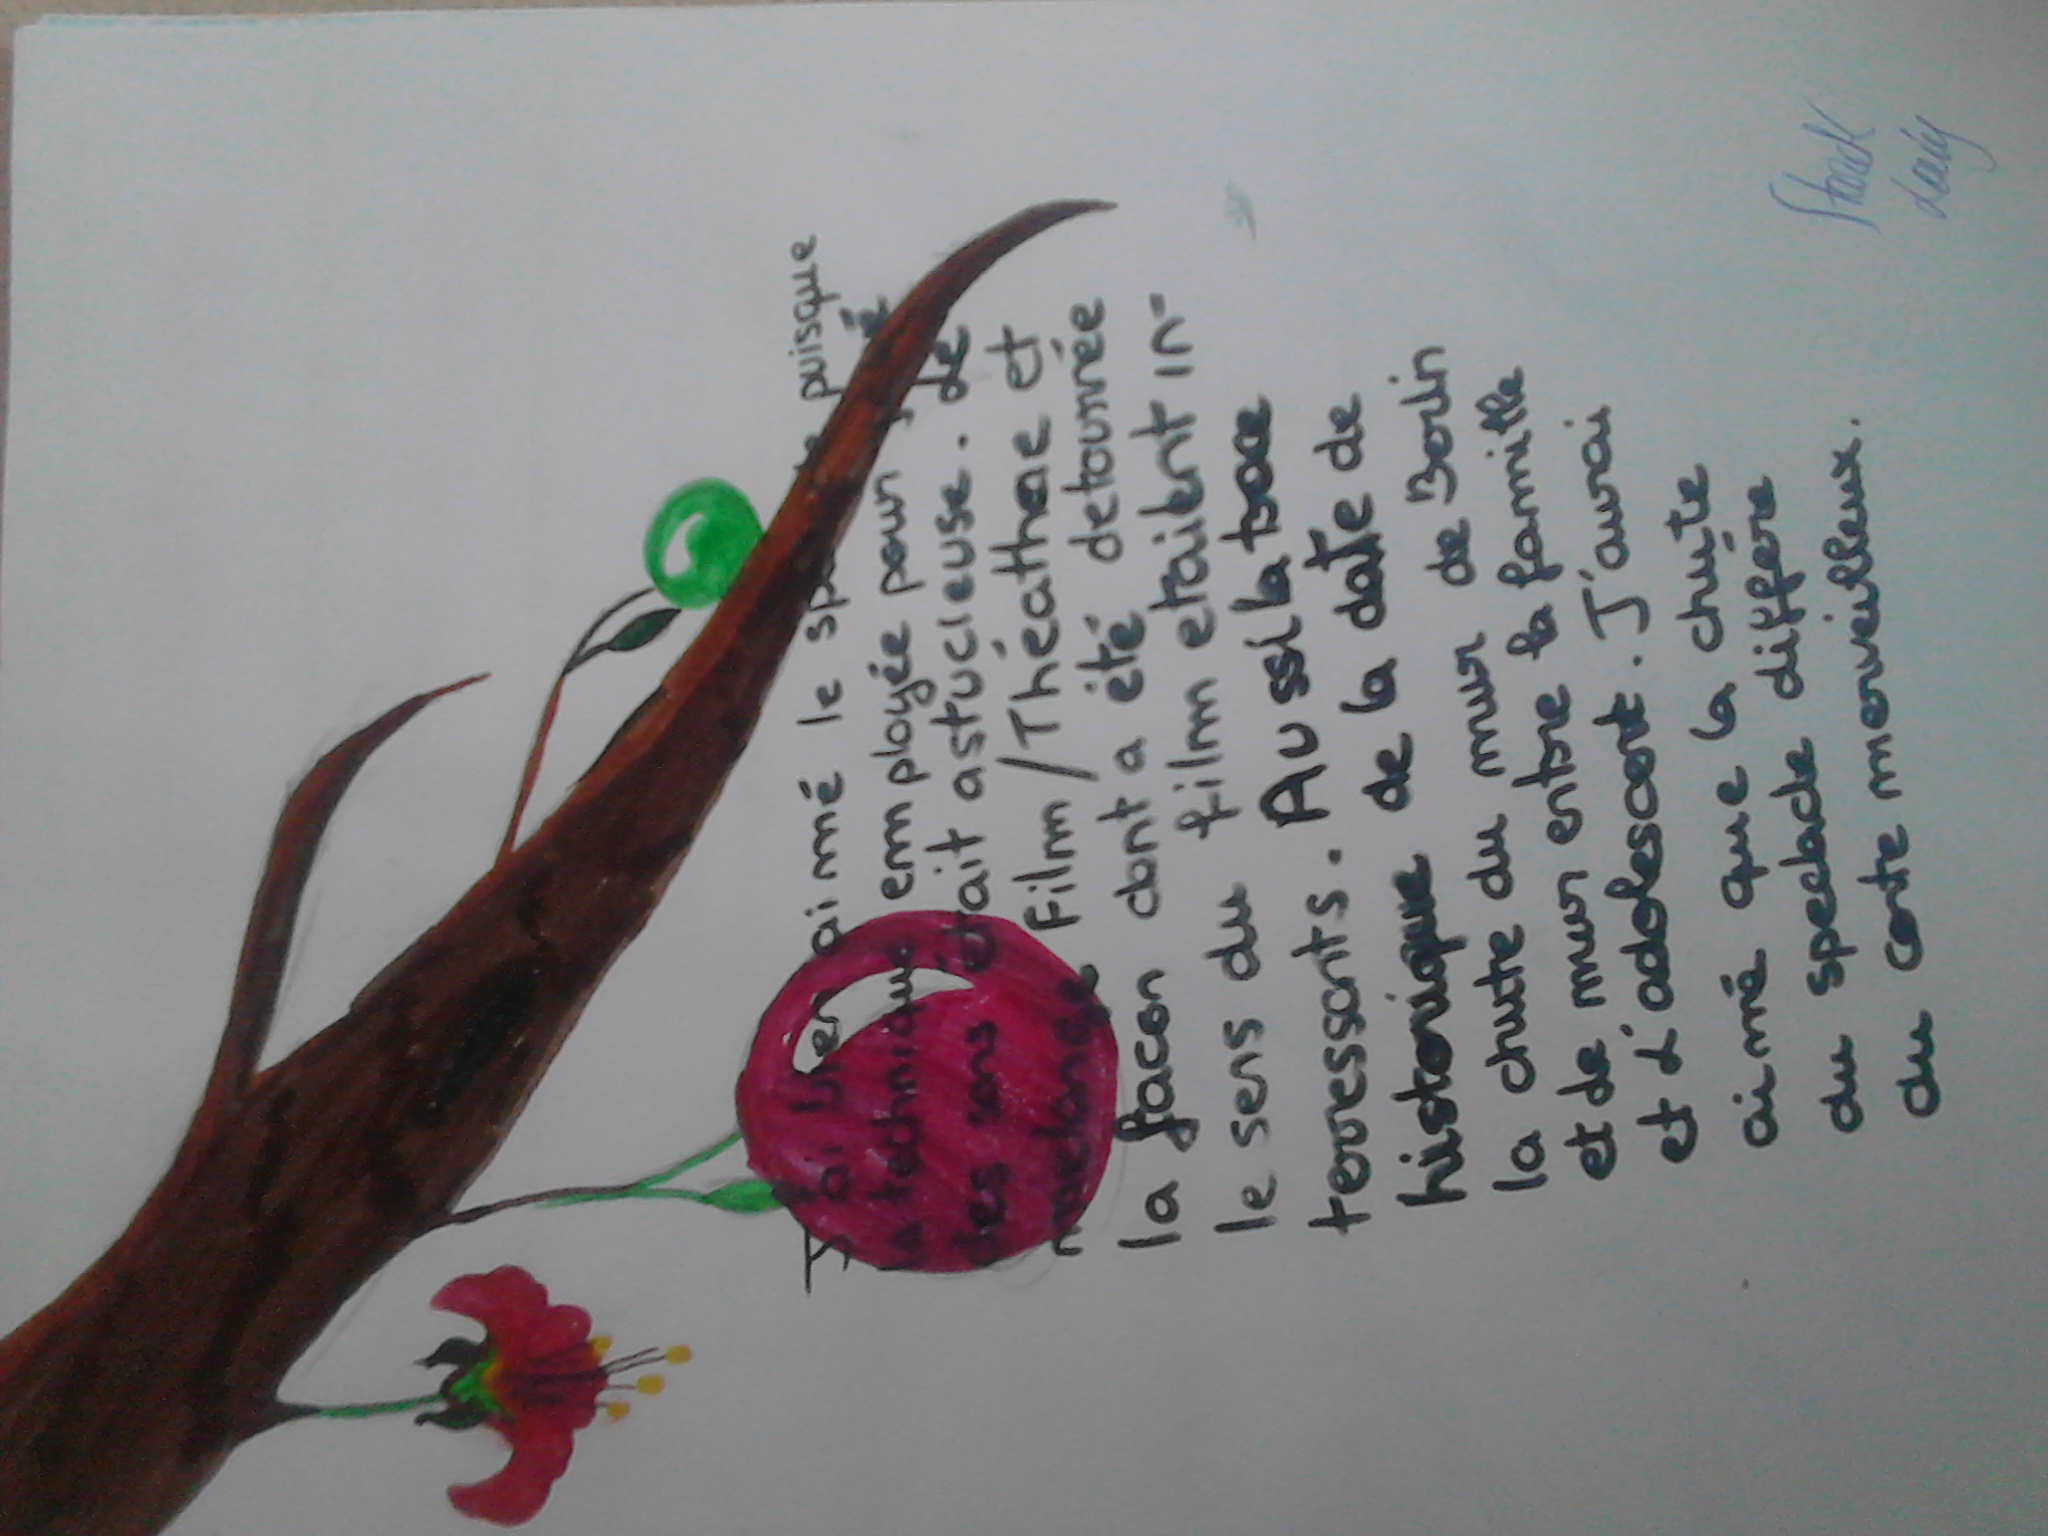 J'ai bien aimé le puisque
la technique employée pour
des sons était astucieuse. De
melange Film/Théathre et
la facon dont a été detournée
le sens du film etaient in-
teressants. Aussi la trace
historique de la date de
la chute du mur de Berlin
et de mur entre la famille
et l'adolescent. J'aurai
aimé que la chute
du spectacle diffère
du conte merveilleux.